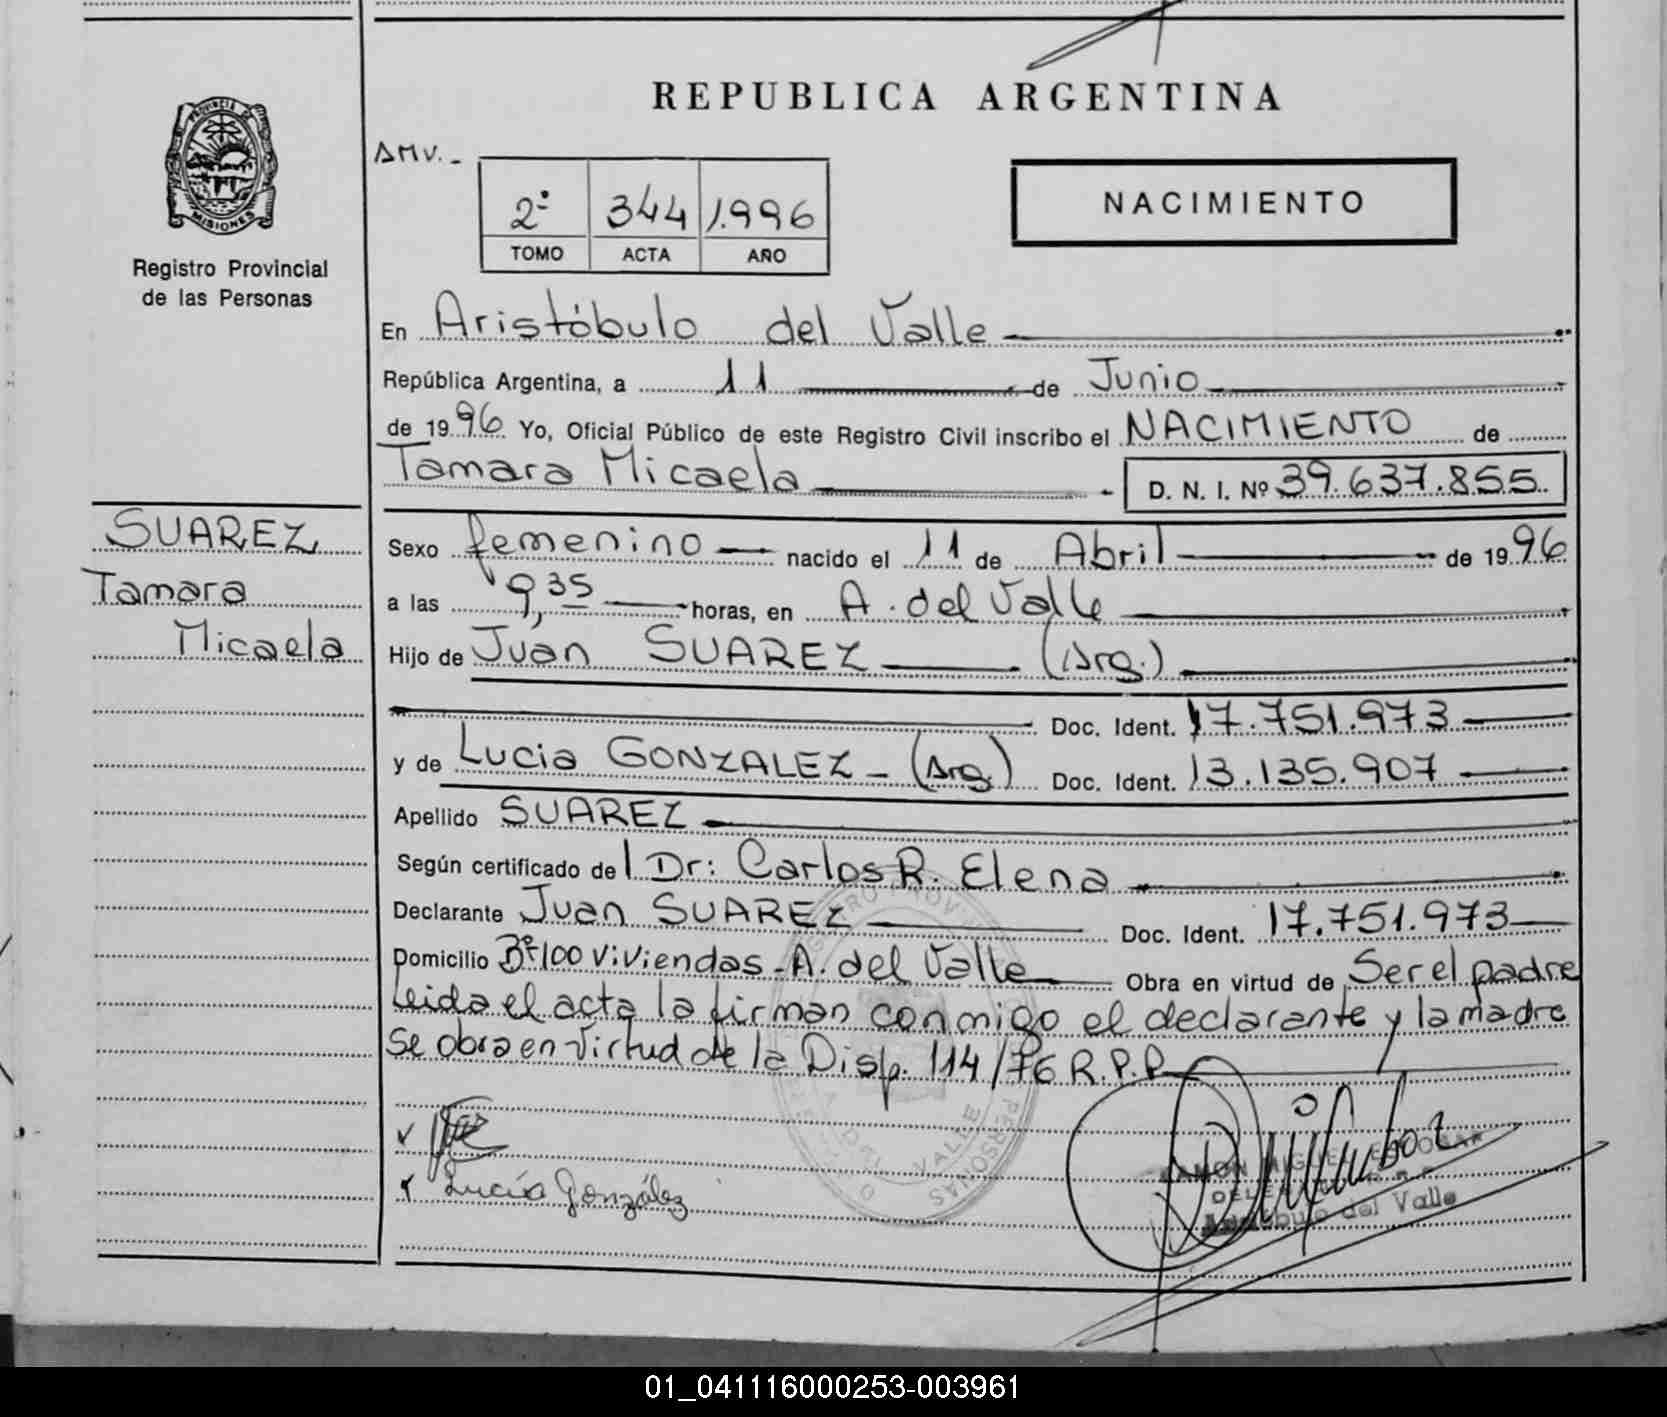 REPUBLICA ARGENTINA
PROVINCIA DE
MISIONES
Registro Provincial
de las Personas
AMV.-
2º 344 1.996
TOMO ACTA AÑO
NACIMIENTO
En Aristóbulo del Valle
República Argentina, a 11 de Junio
de 1996 Yo, Oficial Público de este Registro Civil inscribo el NACIMIENTO de
Tamara Micaela D. N. I. Nº 39.637.855
SUAREZ
Tamara
Micaela
Sexo femenino nacido el 11 de Abril de 1996
a las 9,35 horas, en A. del Valle
Hijo de Juan SUAREZ (Arg.)
Doc. Ident. 17.751.973
y de Lucia GONZALEZ - (Arg.) Doc. Ident. 13.135.907
Apellido SUAREZ
Según certificado del Dr: Carlos R. Elena
Declarante Juan SUAREZ Doc. Ident. 17.751.973
Domicilio Bº 100 viviendas - A. del Valle Obra en virtud de Ser el padre
leida el acta la firman conmigo el declarante y la madre
Se obra en virtud de la Disp. 114/76 R.P.P.
Lucía González
RAMON MIGUEL ESCOBAR
Aristóbulo del Valle
01_041116000253-003961